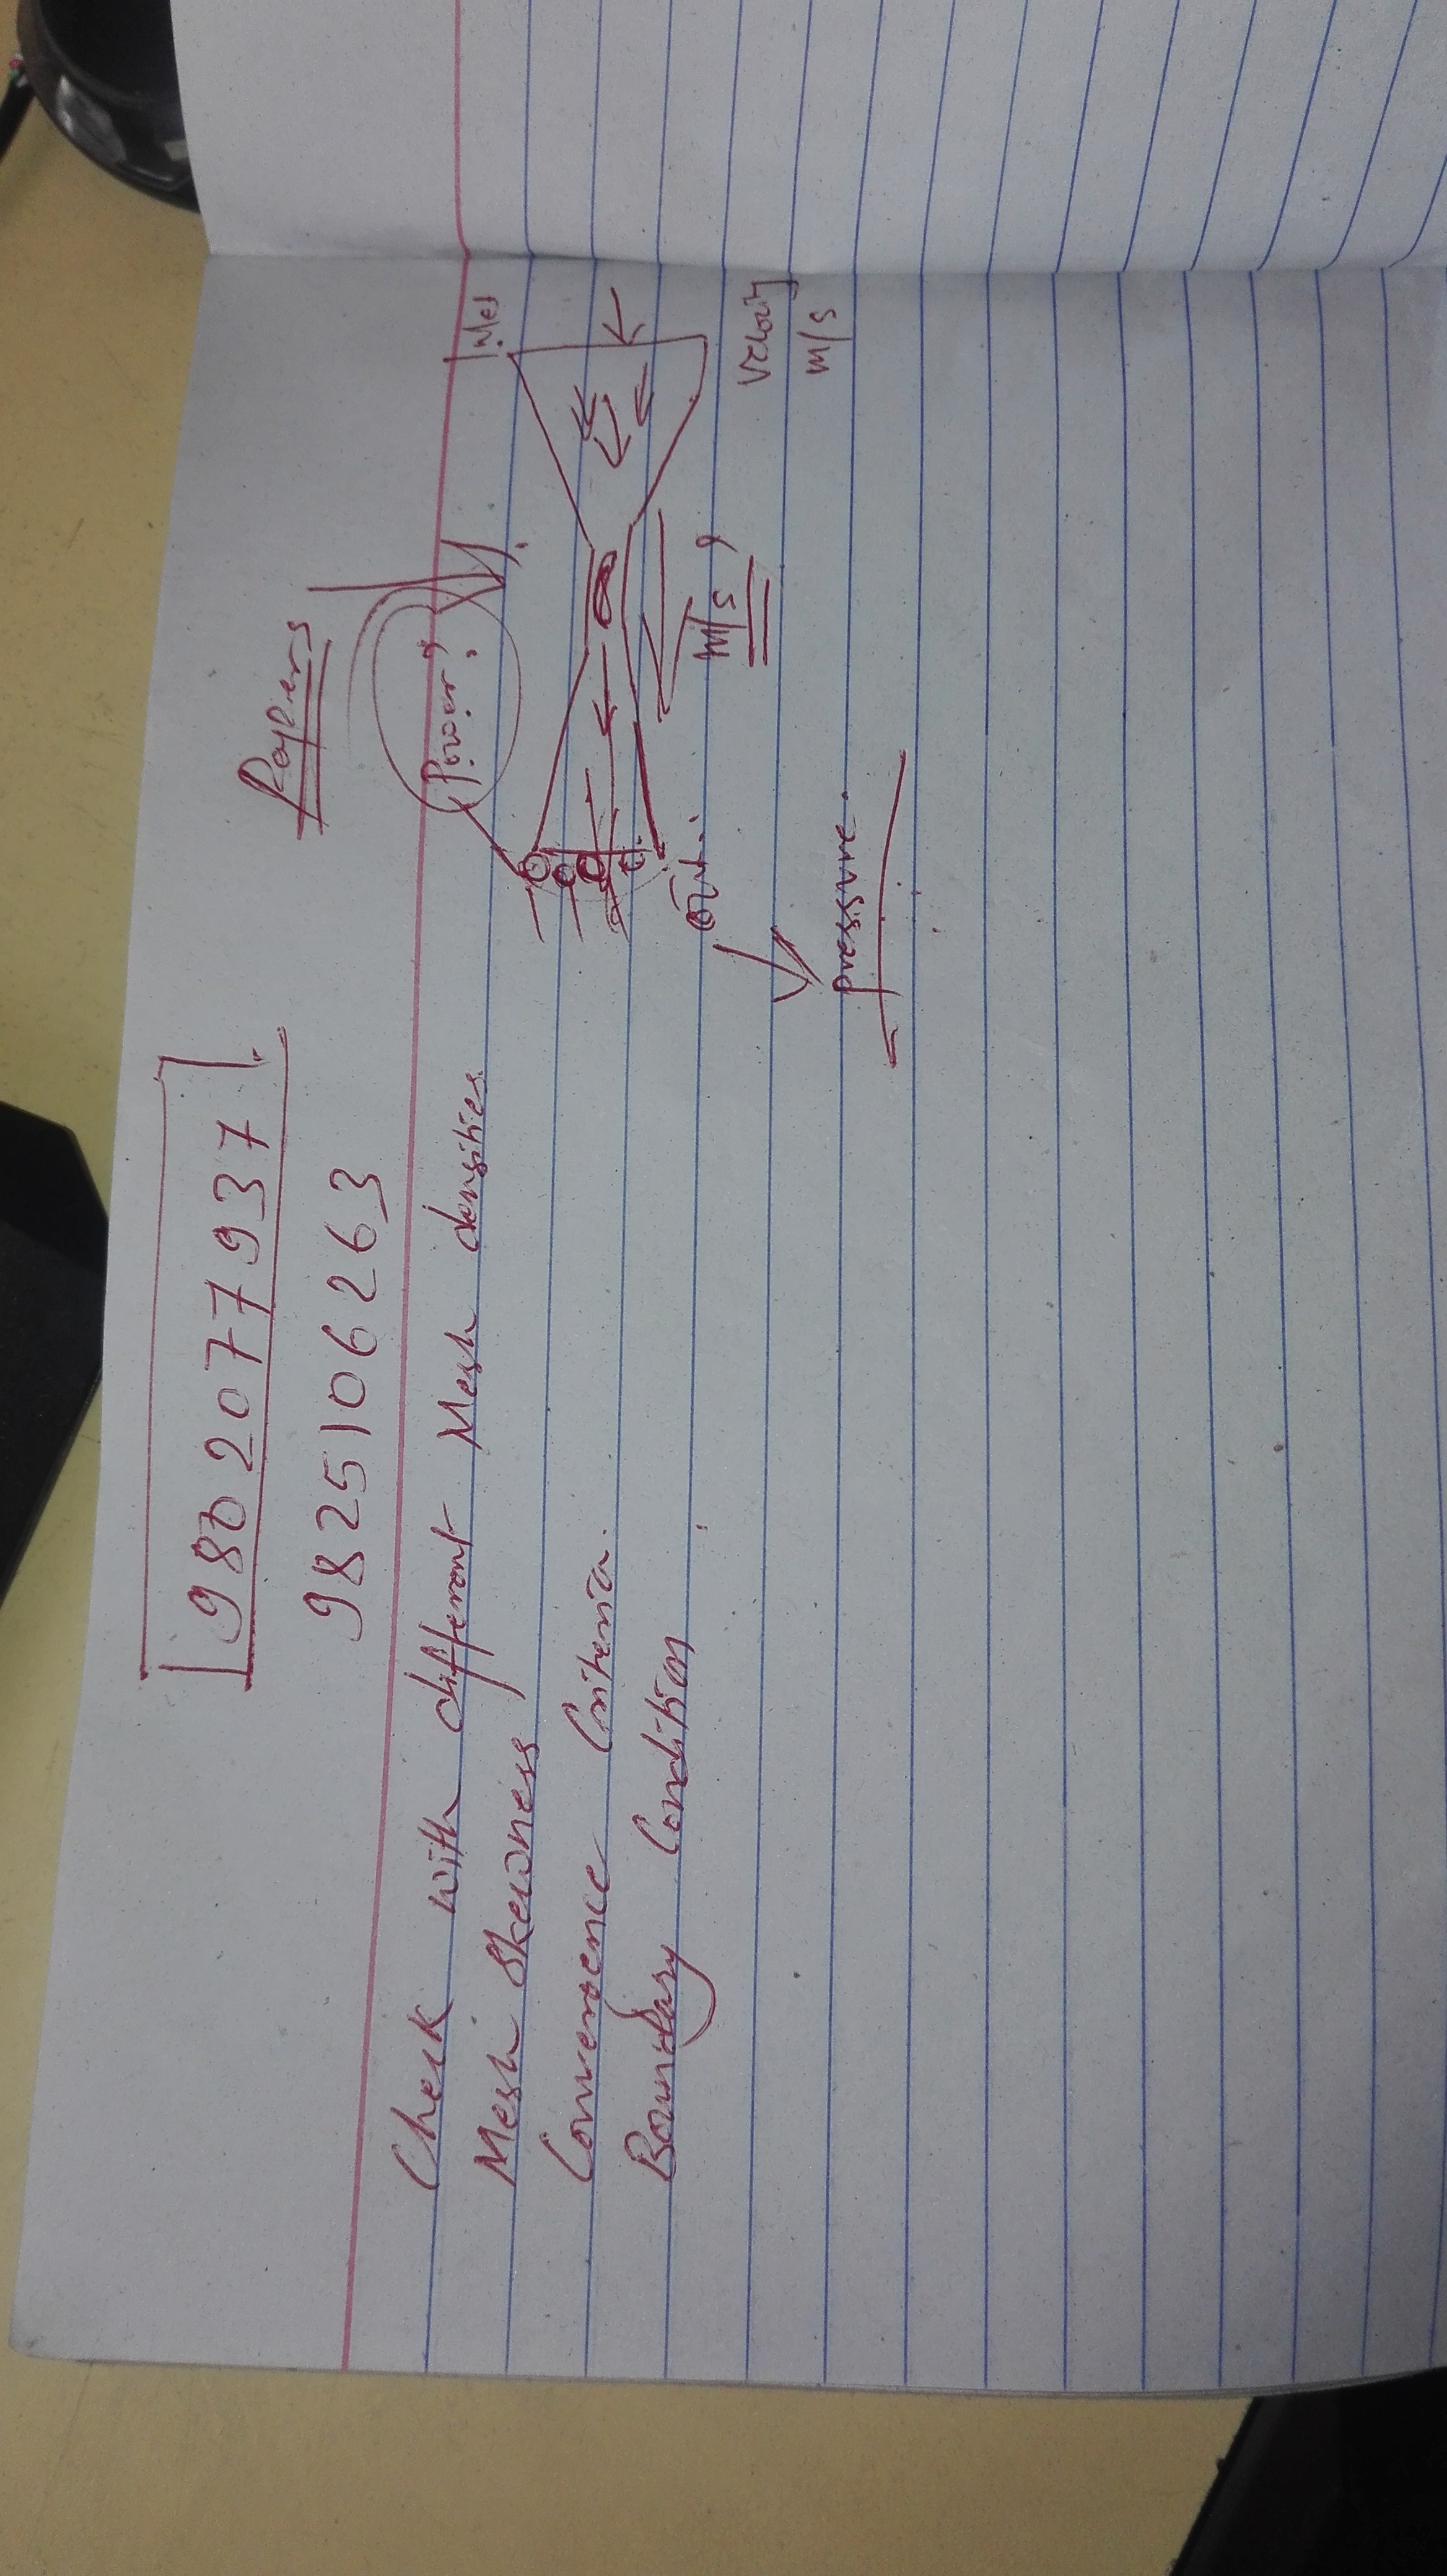 9802077937
9825106263
Check with different Mesh densities
Mesh Skewness
Convergence Criteria.
Boundary Condition
Papers
Power?
Inlet
Velocity
m/s
m/s ?
Out
pressure.